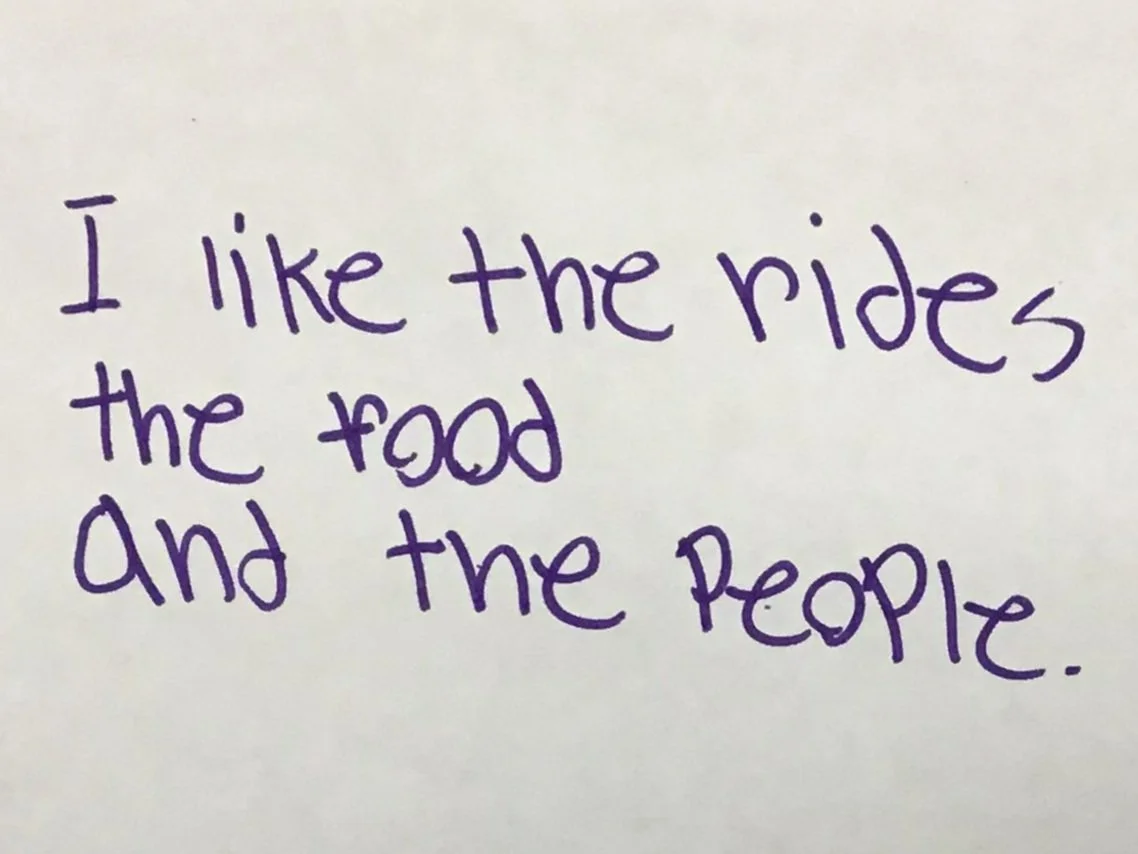 I like the rides
the food
and the PeoPle.